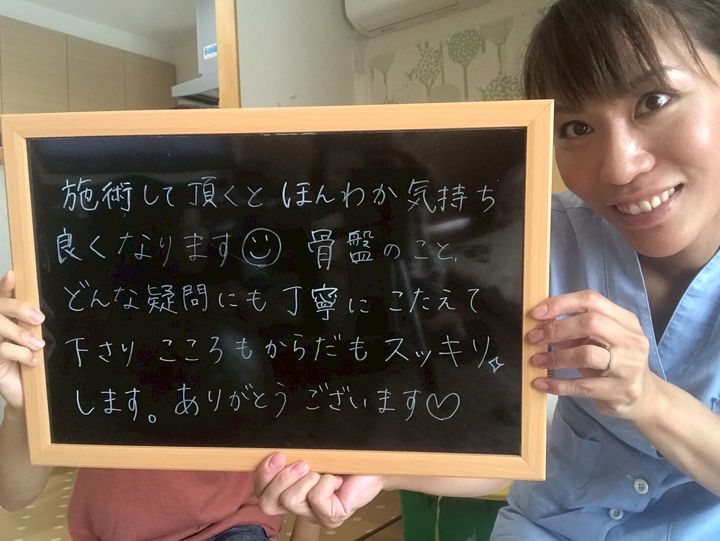 施術して頂くと ほんわか 気持ち
良くなります☺ 骨盤のこと、
どんな疑問にも丁寧にこたえて
下さり こころもからだもスッキリ✧
します。ありがとうございます♡